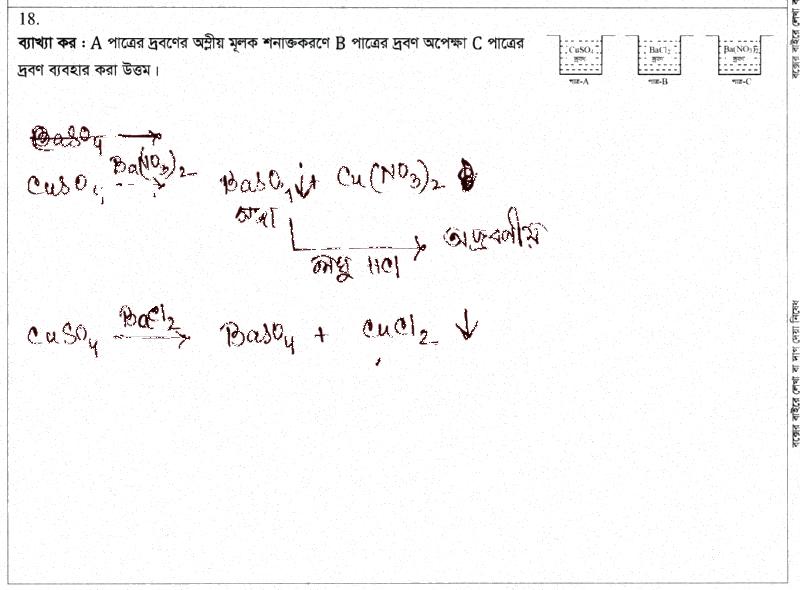 18.
ব্যাখ্যা কর : A পাত্রের দ্রবণের অম্লীয় মূলক শনাক্তকরণে B পাত্রের দ্রবণ অপেক্ষা C পাত্রের
দ্রবণ ব্যবহার করা উত্তম।
CuSO₄ দ্রবণ
পাত্র-A
BaCl₂ দ্রবণ
পাত্র-B
Ba(NO₃)₂ দ্রবণ
পাত্র-C
BaSO₄ →
CuSO₄ Ba(NO₃)₂ → BaSO₄↓ + Cu(NO₃)₂
সাদা
লঘু HCl → অদ্রবণীয়
CuSO₄ BaCl₂ → BaSO₄ + CuCl₂ ↓
বক্সের বাইরে লেখা বা দাগ দেয়া নিষেধ
বক্সের বাইরে লেখা ব